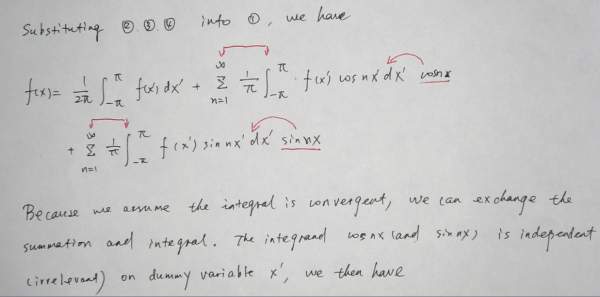 Substituting ② ③ ④ into ①, we have
f(x) = \frac{1}{2\pi} \int_{-\pi}^{\pi} f(x') dx' + \sum_{n=1}^{\infty} \frac{1}{\pi} \int_{-\pi}^{\pi} f(x') cos nx' dx' cos nx
+ \sum_{n=1}^{\infty} \frac{1}{\pi} \int_{-\pi}^{\pi} f(x') sin nx' dx' sin nx
Because we assume the integral is convergent, we can exchange the
summation and integral. The integrand cos nx (and sin nx) is independent
(irrelevant) on dummy variable x', we then have